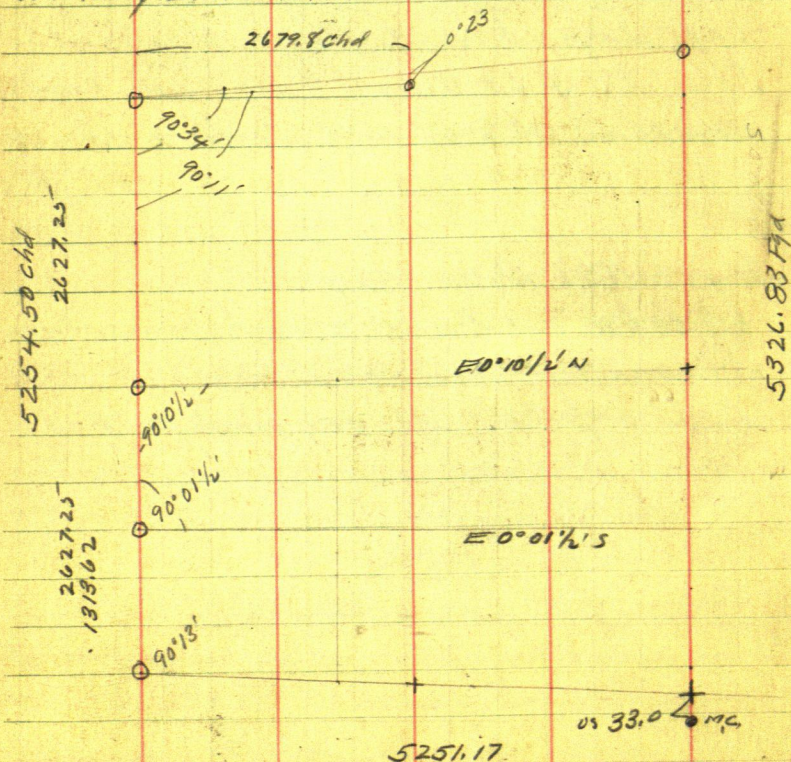 2679.8 Chd
0°23
90°34'
90°11'
5254.50 Chd
2627.25
5326.83 Fgd
E 0°10 1/2' N
90°10 1/2'
90°01 1/2'
E 0°01 1/2' S
2627.25
1313.62
90°13'
33.0
M.C.
5251.17